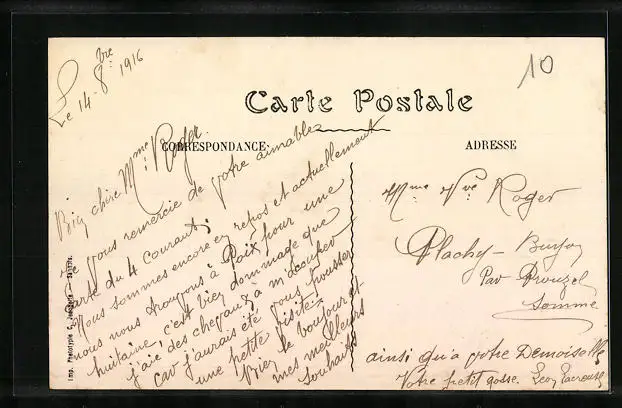 Le 14-8bre 1916
10
Carte Postale
CORRESPONDANCE
ADRESSE
Bien chère Mme Roger
Vous remercie de votre aimable
carte du 4 courant;
Nous sommes encore en repos et actuellement
nous nous trouvons à Poix pour une
huitaine, c'est bien dommage que
j'aie des chevaux à m'occuper
car j'aurais été vous pousser
une petite visite;
Bien le bonjour et
mes meilleurs
souhaits
Mme Vve Roger
Plachy-Buyon
Par Prouzel
Somme
ainsi qu'à votre Demoiselle
Votre petit gosse. Léon
Imp. Phototypie